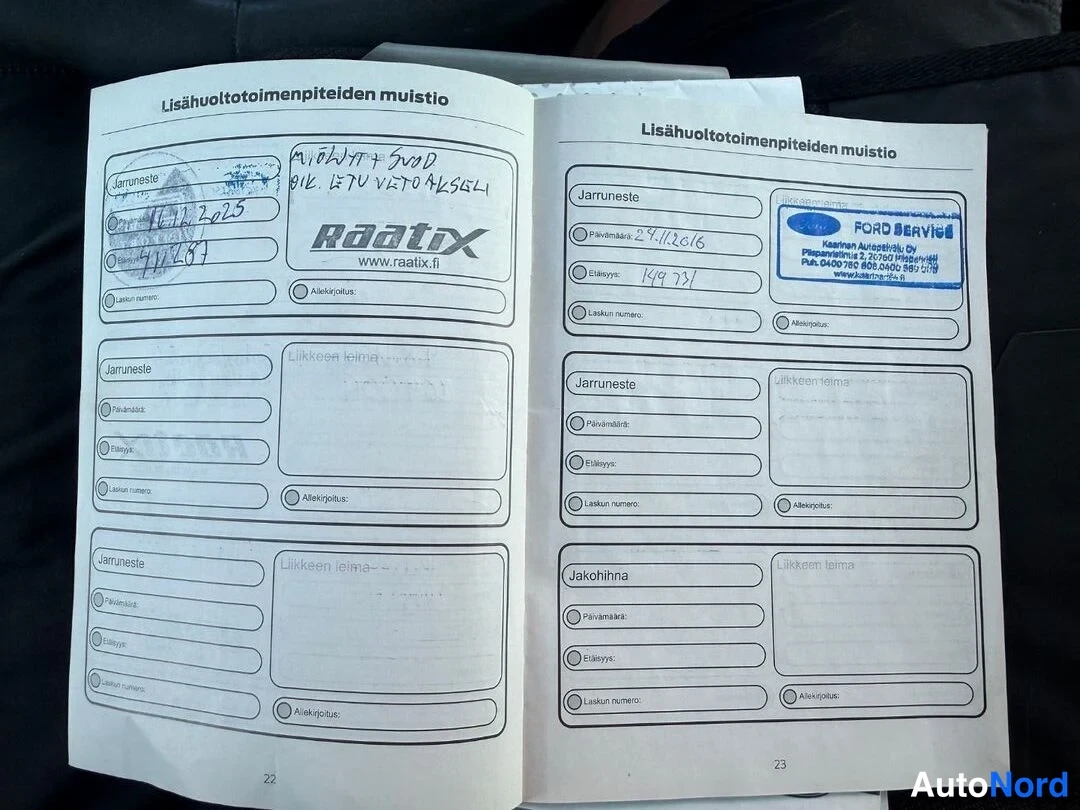 Lisähuoltotoimenpiteiden muistio
Jarruneste
16.12.2025
Etäisyys:
411.287
Laskun numero:
ÖLJYT + SUOD
OIK. ETU VETOAKSELI
RaatiX
www.raatix.fi
Allekirjoitus:
Jarruneste
Päivämäärä:
Etäisyys:
Laskun numero:
Liikkeen leima
Allekirjoitus:
Jarruneste
Päivämäärä:
Etäisyys:
Laskun numero:
Liikkeen leima
Allekirjoitus:
22
Lisähuoltotoimenpiteiden muistio
Jarruneste
Päivämäärä: 24.11.2016
Etäisyys: 149 731
Laskun numero:
Liikkeen leima
Ford
FORD SERVICE
Kaarinan Autopalvelu Oy
Piispanristintie 2, 20760 Piispanristi
Puh. 0400 780
Allekirjoitus:
Jarruneste
Päivämäärä:
Etäisyys:
Laskun numero:
Liikkeen leima
Allekirjoitus:
Jakohihna
Päivämäärä:
Etäisyys:
Laskun numero:
Liikkeen leima
Allekirjoitus:
23
AutoNord